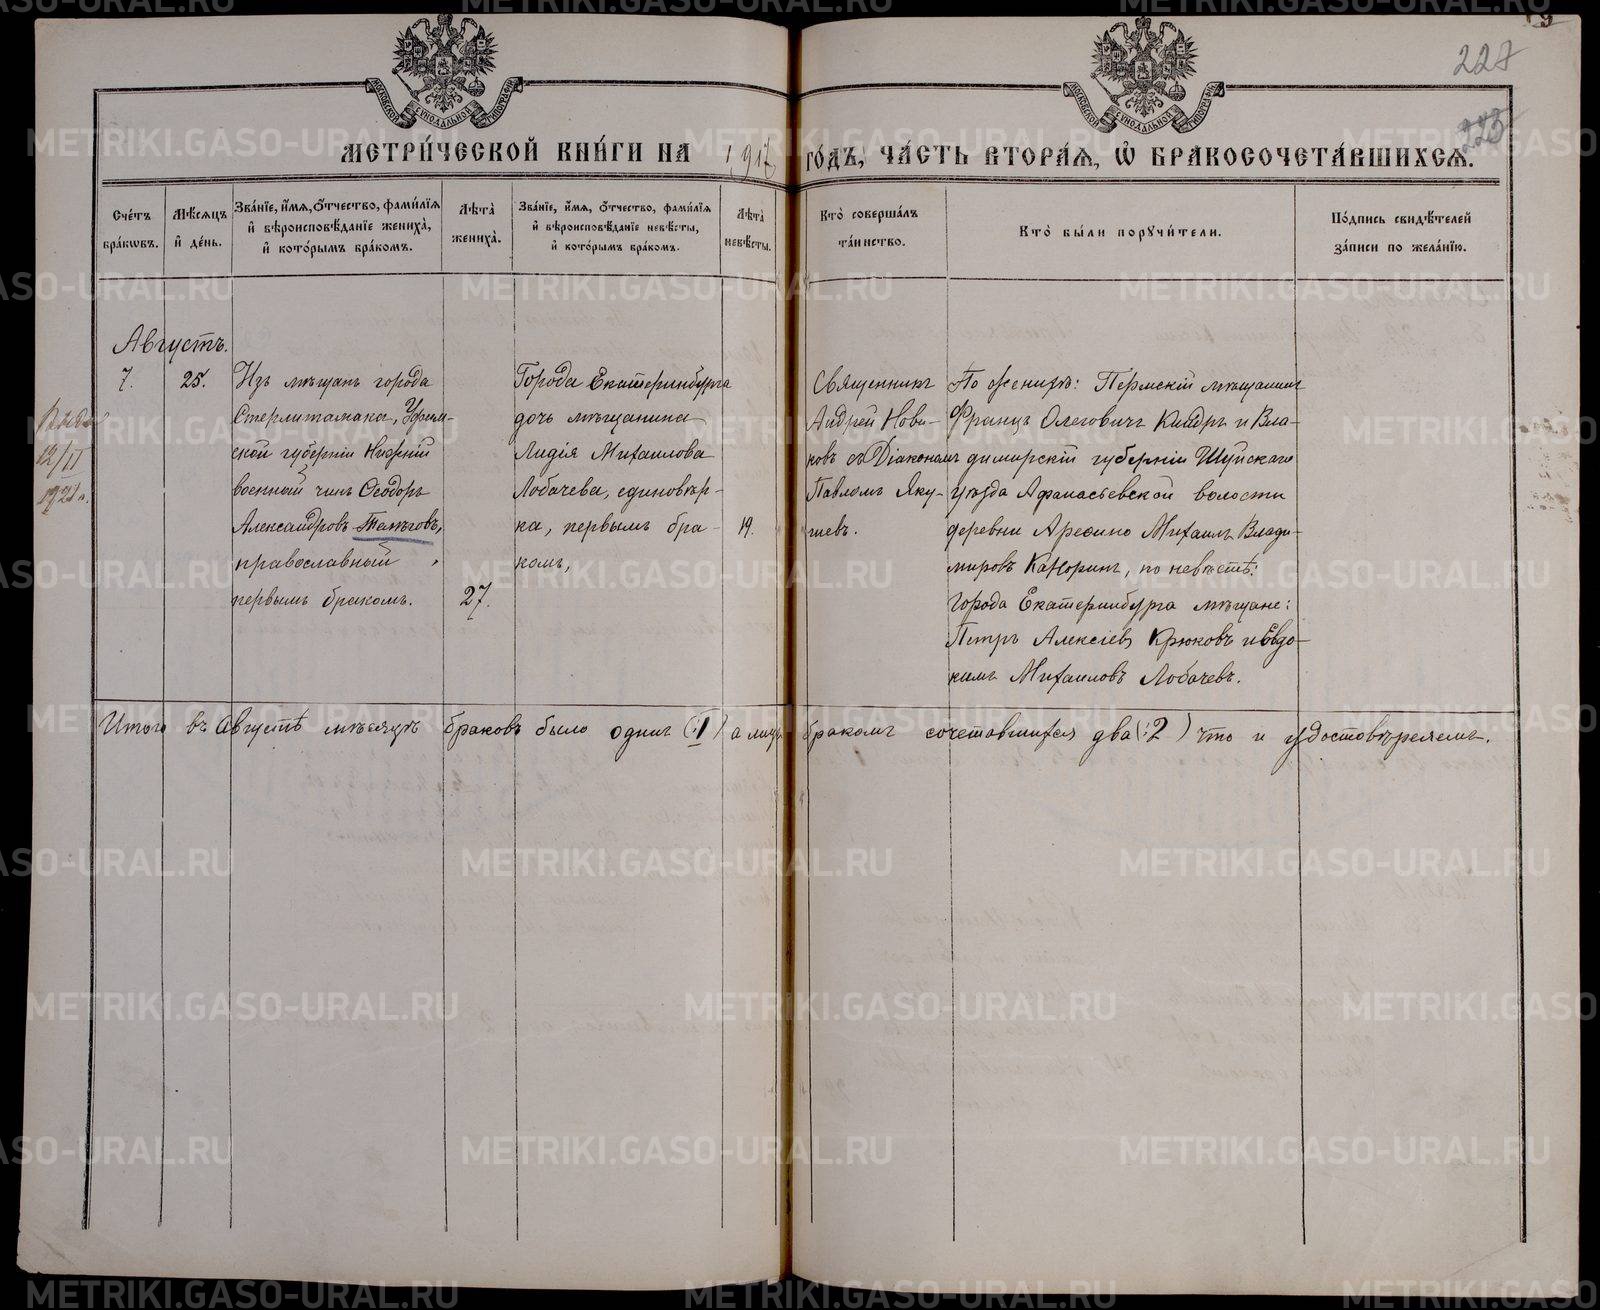 227
223
МЕТРИ́ЧЕСКОЙ КНИ́ГИ НА 1917 ГО́ДЪ, ЧА́СТЬ ВТОРА́Ѧ, Ѽ БРАКОСОЧЕТА́ВШИХСѦ.
Сче́тъ
бра́ковъ.
Мѣ́сяцъ
и́ де́нь.
Зва́нїе, и́мя, ѻ́тчество, фами́лїя
и́ вѣроисповѣ́данїе жениха̀,
и́ кото́рымъ бра́комъ.
Лѣта̀
жениха̀.
Зва́нїе, и́мя, ѻ́тчество, фами́лїя
и́ вѣроисповѣ́данїе невѣ́сты,
и́ кото́рымъ бра́комъ.
Лѣта̀
невѣ́сты.
Кто̀ соверша́лъ
та́инство.
Кто̀ бы́ли поручи́тели.
По́дпись свидѣ́телей
за́писи по жела́нїю.
Августъ.
7.
25.
Изъ мѣщанъ города
Стерлитамака, Уфим-
ской губерніи Нижній
военный чинъ Ѳеодоръ
Александровъ
православный,
первымъ бракомъ.
27.
Города Екатеринбурга
дочь мѣщанина
Лидія Михаилова
Лобачева, единовѣр-
ка, первымъ бра-
комъ,
19.
Священникъ
Андрей Нови-
ковъ съ Діакономъ
Павломъ Яку-
шевъ.
По женихѣ: Пермскій мѣщанинъ
Францъ Олеговичъ и Вла-
димирскій губерніи Шуйскаго
уѣзда Афанасьевской волости
деревни Аресино Михаилъ Влади-
мировъ Каноринъ, по невѣстѣ:
города Екатеринбурга мѣщане:
Петръ Алексіевъ Крюковъ и Евдо-
кимъ Михаиловъ Лобачевъ.
12/II
1921 г.
Итого въ Августѣ мѣсяцѣ браковъ было одинъ (:1) а лицъ бракомъ сочетавшихся два (:2) что и удостовѣряемъ.
METRIKI.GASO-URAL.RU